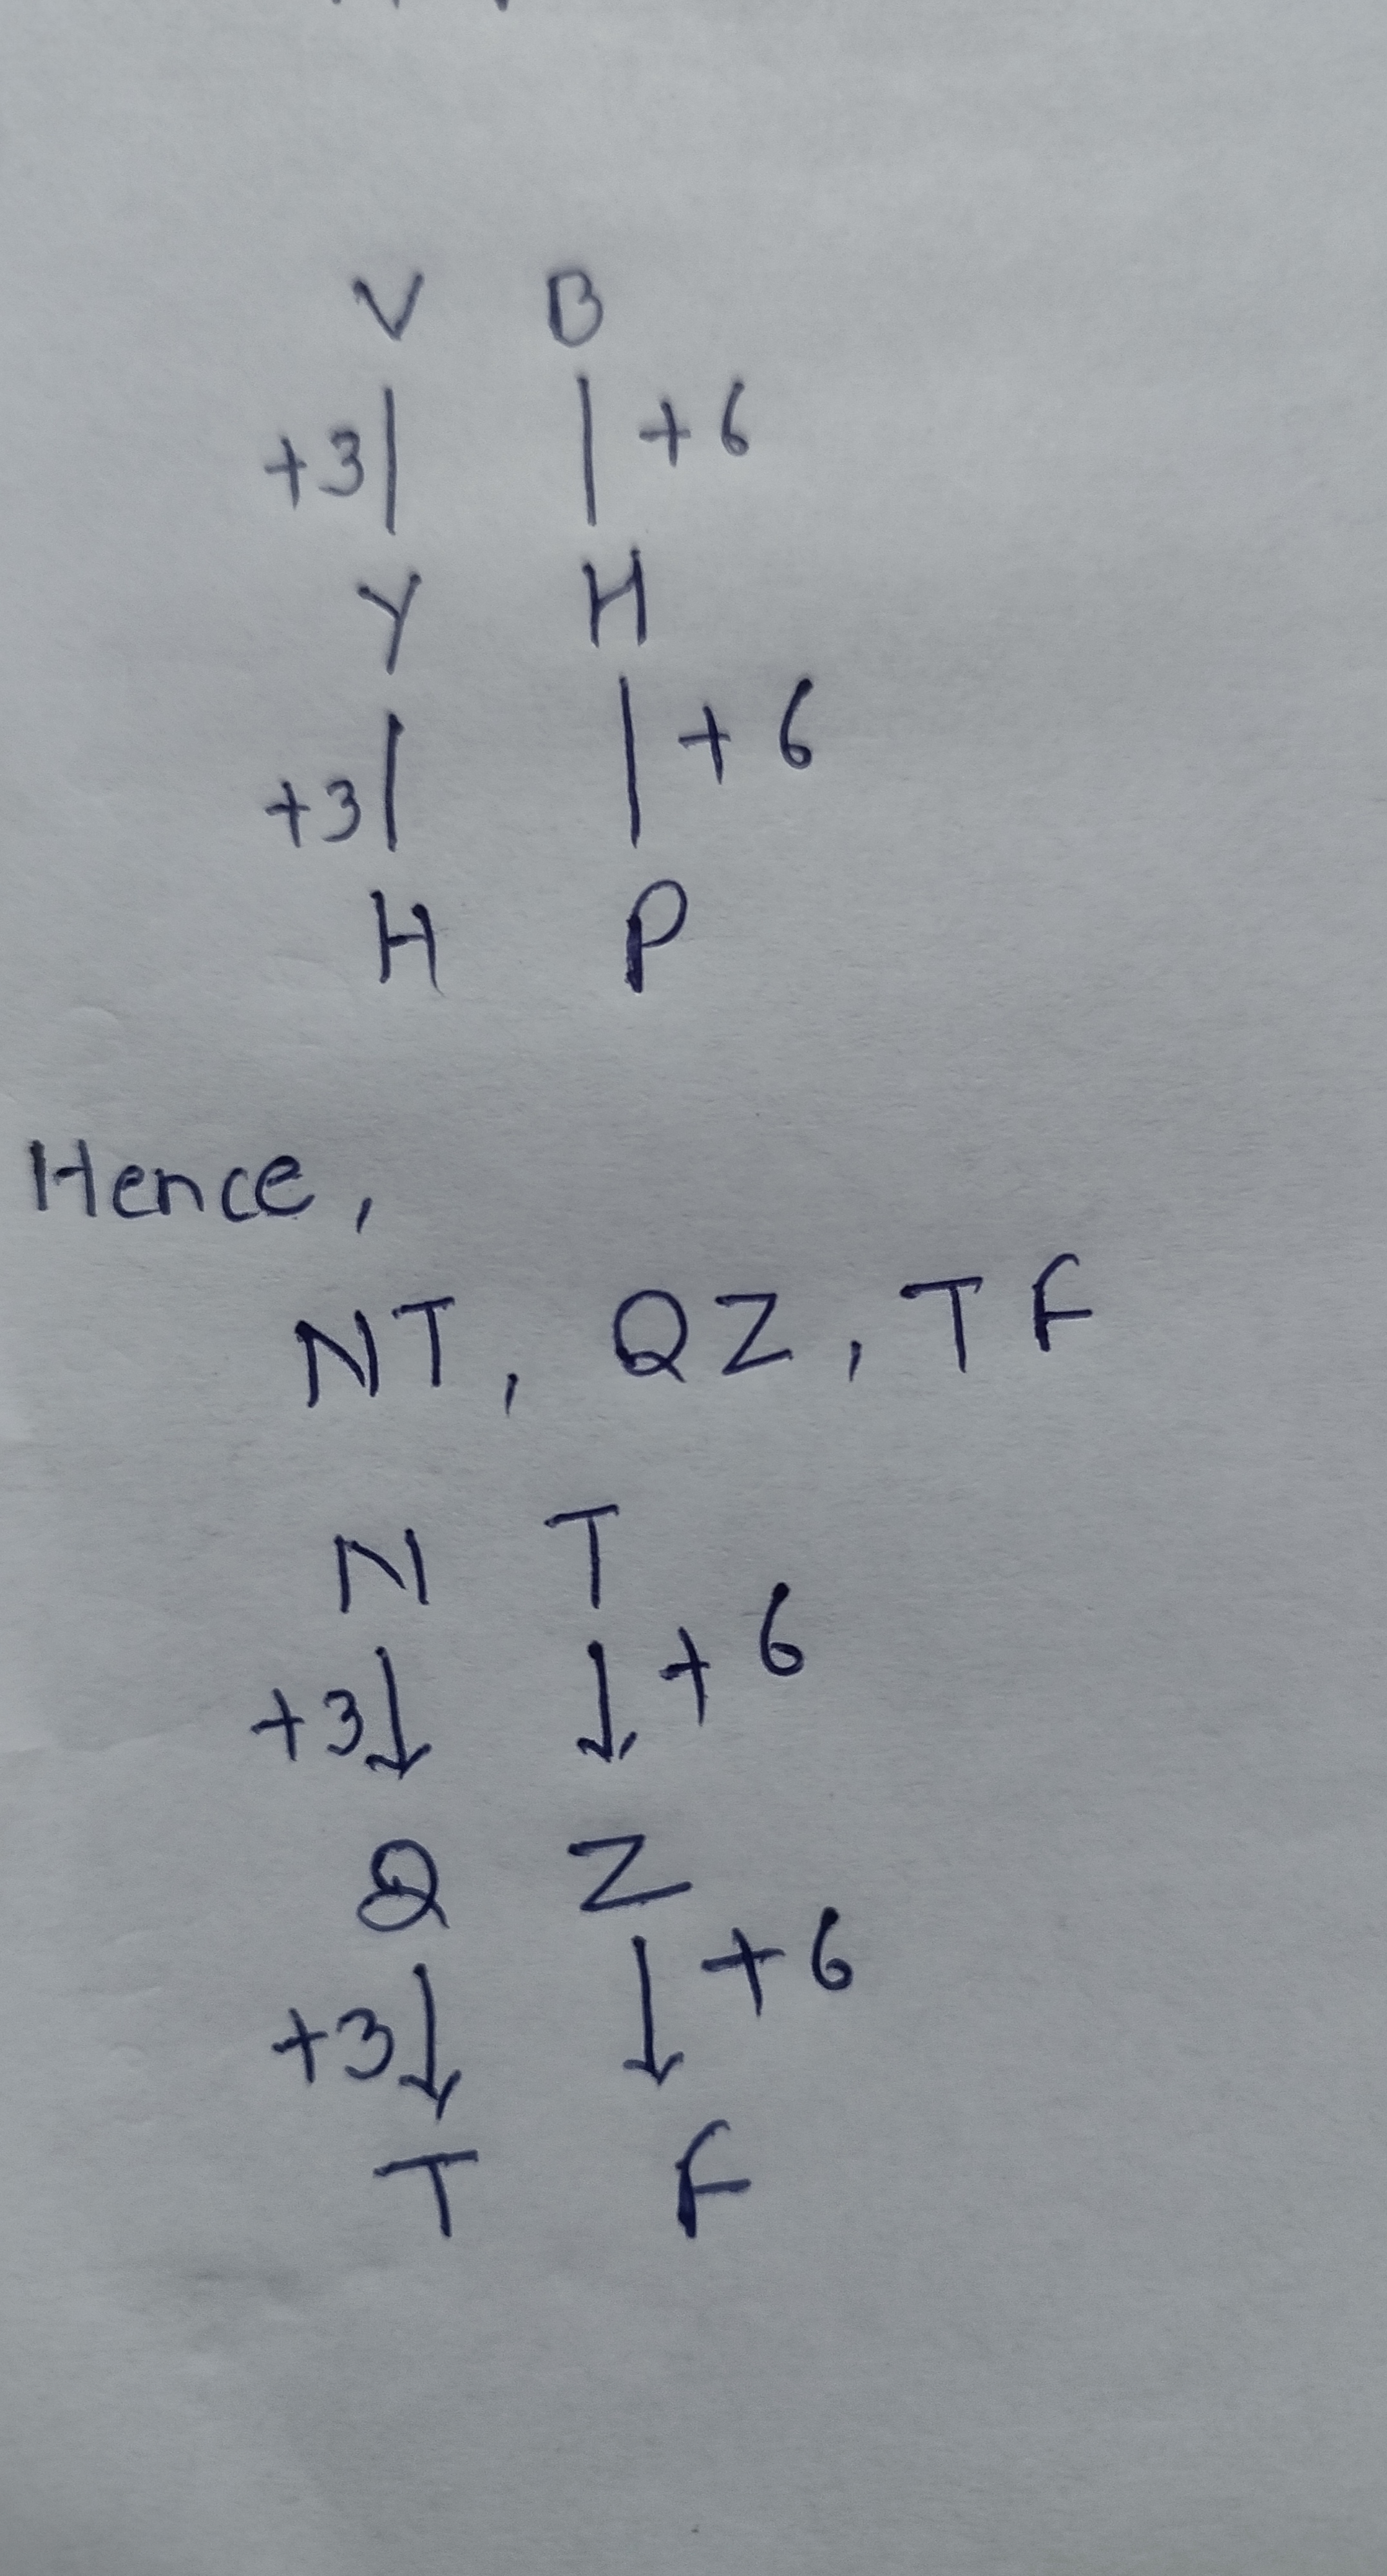 V B
+3 | | +6
Y H
+3 | | +6
H P
Hence,
NT, QZ, TF
N T
+3↓ ↓+6
Q Z
+3↓ ↓+6
T F